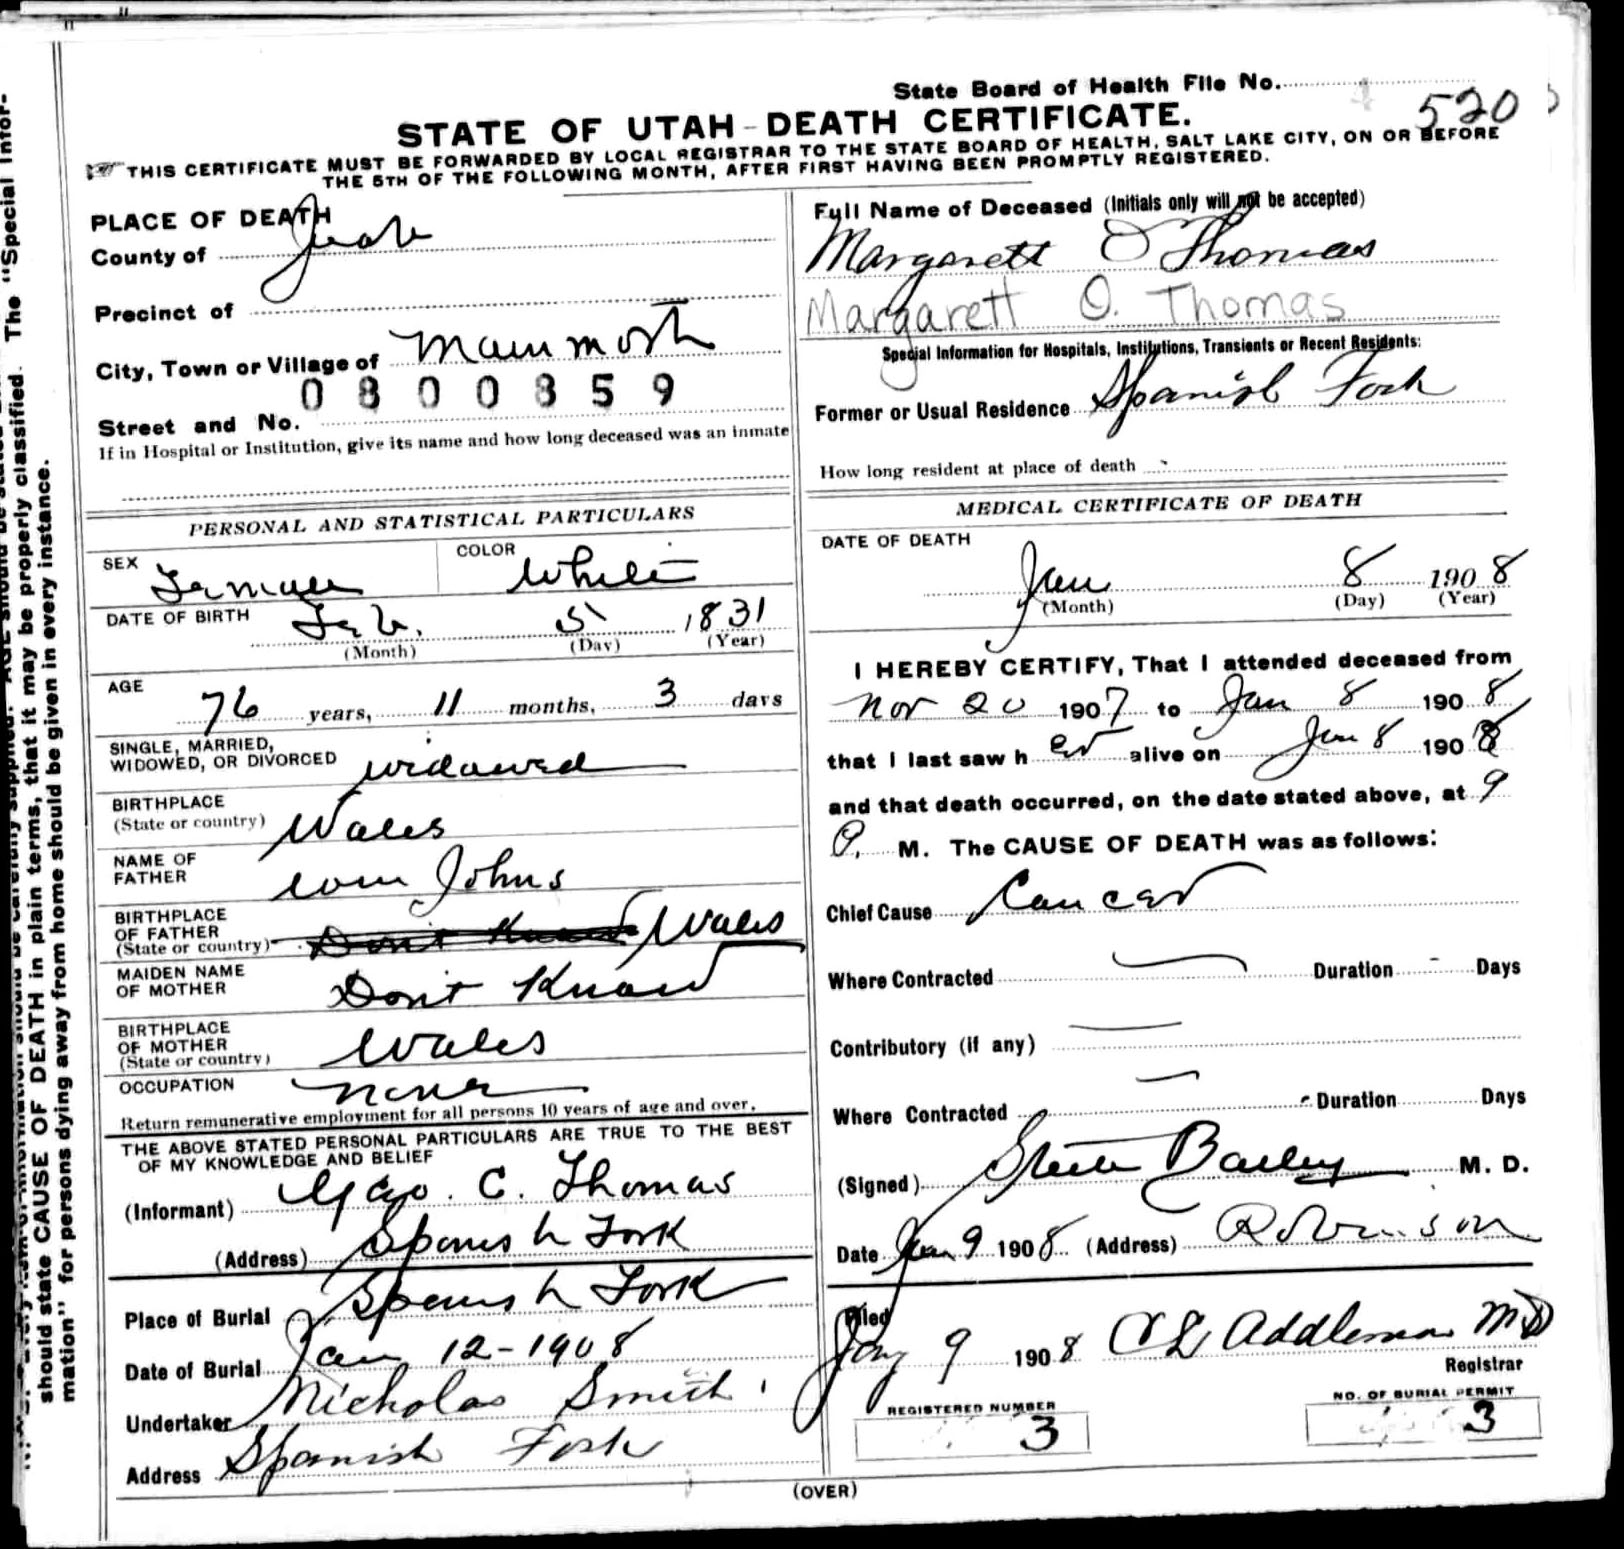 State Board of Health File No. 520
STATE OF UTAH-DEATH CERTIFICATE.
THIS CERTIFICATE MUST BE FORWARDED BY LOCAL REGISTRAR TO THE STATE BOARD OF HEALTH, SALT LAKE CITY, ON OR BEFORE
THE 5TH OF THE FOLLOWING MONTH, AFTER FIRST HAVING BEEN PROMPTLY REGISTERED.
PLACE OF DEATH
County of Juab
Precinct of
City, Town or Village of Mammoth
0800359
Street and No.
If in Hospital or Institution, give its name and how long deceased was an inmate
PERSONAL AND STATISTICAL PARTICULARS
SEX Female COLOR White
DATE OF BIRTH Feb. 5 1831
(Month) (Day) (Year)
AGE 76 years, 11 months, 3 days
SINGLE, MARRIED,
WIDOWED, OR DIVORCED widowed
BIRTHPLACE
(State or country) Wales
NAME OF
FATHER Wm Johns
BIRTHPLACE
OF FATHER
(State or country) Don't Know Wales
MAIDEN NAME
OF MOTHER Don't Know
BIRTHPLACE
OF MOTHER
(State or country) Wales
OCCUPATION None
Return remunerative employment for all persons 10 years of age and over.
THE ABOVE STATED PERSONAL PARTICULARS ARE TRUE TO THE BEST
OF MY KNOWLEDGE AND BELIEF
(Informant) Geo. C. Thomas
(Address) Spanish Fork
Place of Burial Spanish Fork
Date of Burial Jan 12-1908
Undertaker Nicholas Smith
Address Spanish Fork
Full Name of Deceased (Initials only will not be accepted)
Margarett O Thomas
Margarett O. Thomas
Special Information for Hospitals, Institutions, Transients or Recent Residents:
Former or Usual Residence Spanish Fork
How long resident at place of death
MEDICAL CERTIFICATE OF DEATH
DATE OF DEATH
Jan 8 1908
(Month) (Day) (Year)
I HEREBY CERTIFY, That I attended deceased from
Nov 20 1907 to Jan 8 1908
that I last saw her alive on Jan 8 1908
and that death occurred, on the date stated above, at 9
M. The CAUSE OF DEATH was as follows:
Chief Cause Cancer
Where Contracted Duration Days
Contributory (if any)
Where Contracted Duration Days
(Signed) Steele Bailey M. D.
Date Jan 9 1908 (Address) Robinson
Filed
Jany 9 1908 Addleman MD
Registrar
REGISTERED NUMBER
3
NO. OF BURIAL PERMIT
3
(OVER)
should state CAUSE OF DEATH in plain terms, that it may be properly classified. The "Special Infor-
mation" for persons dying away from home should be given in every instance.